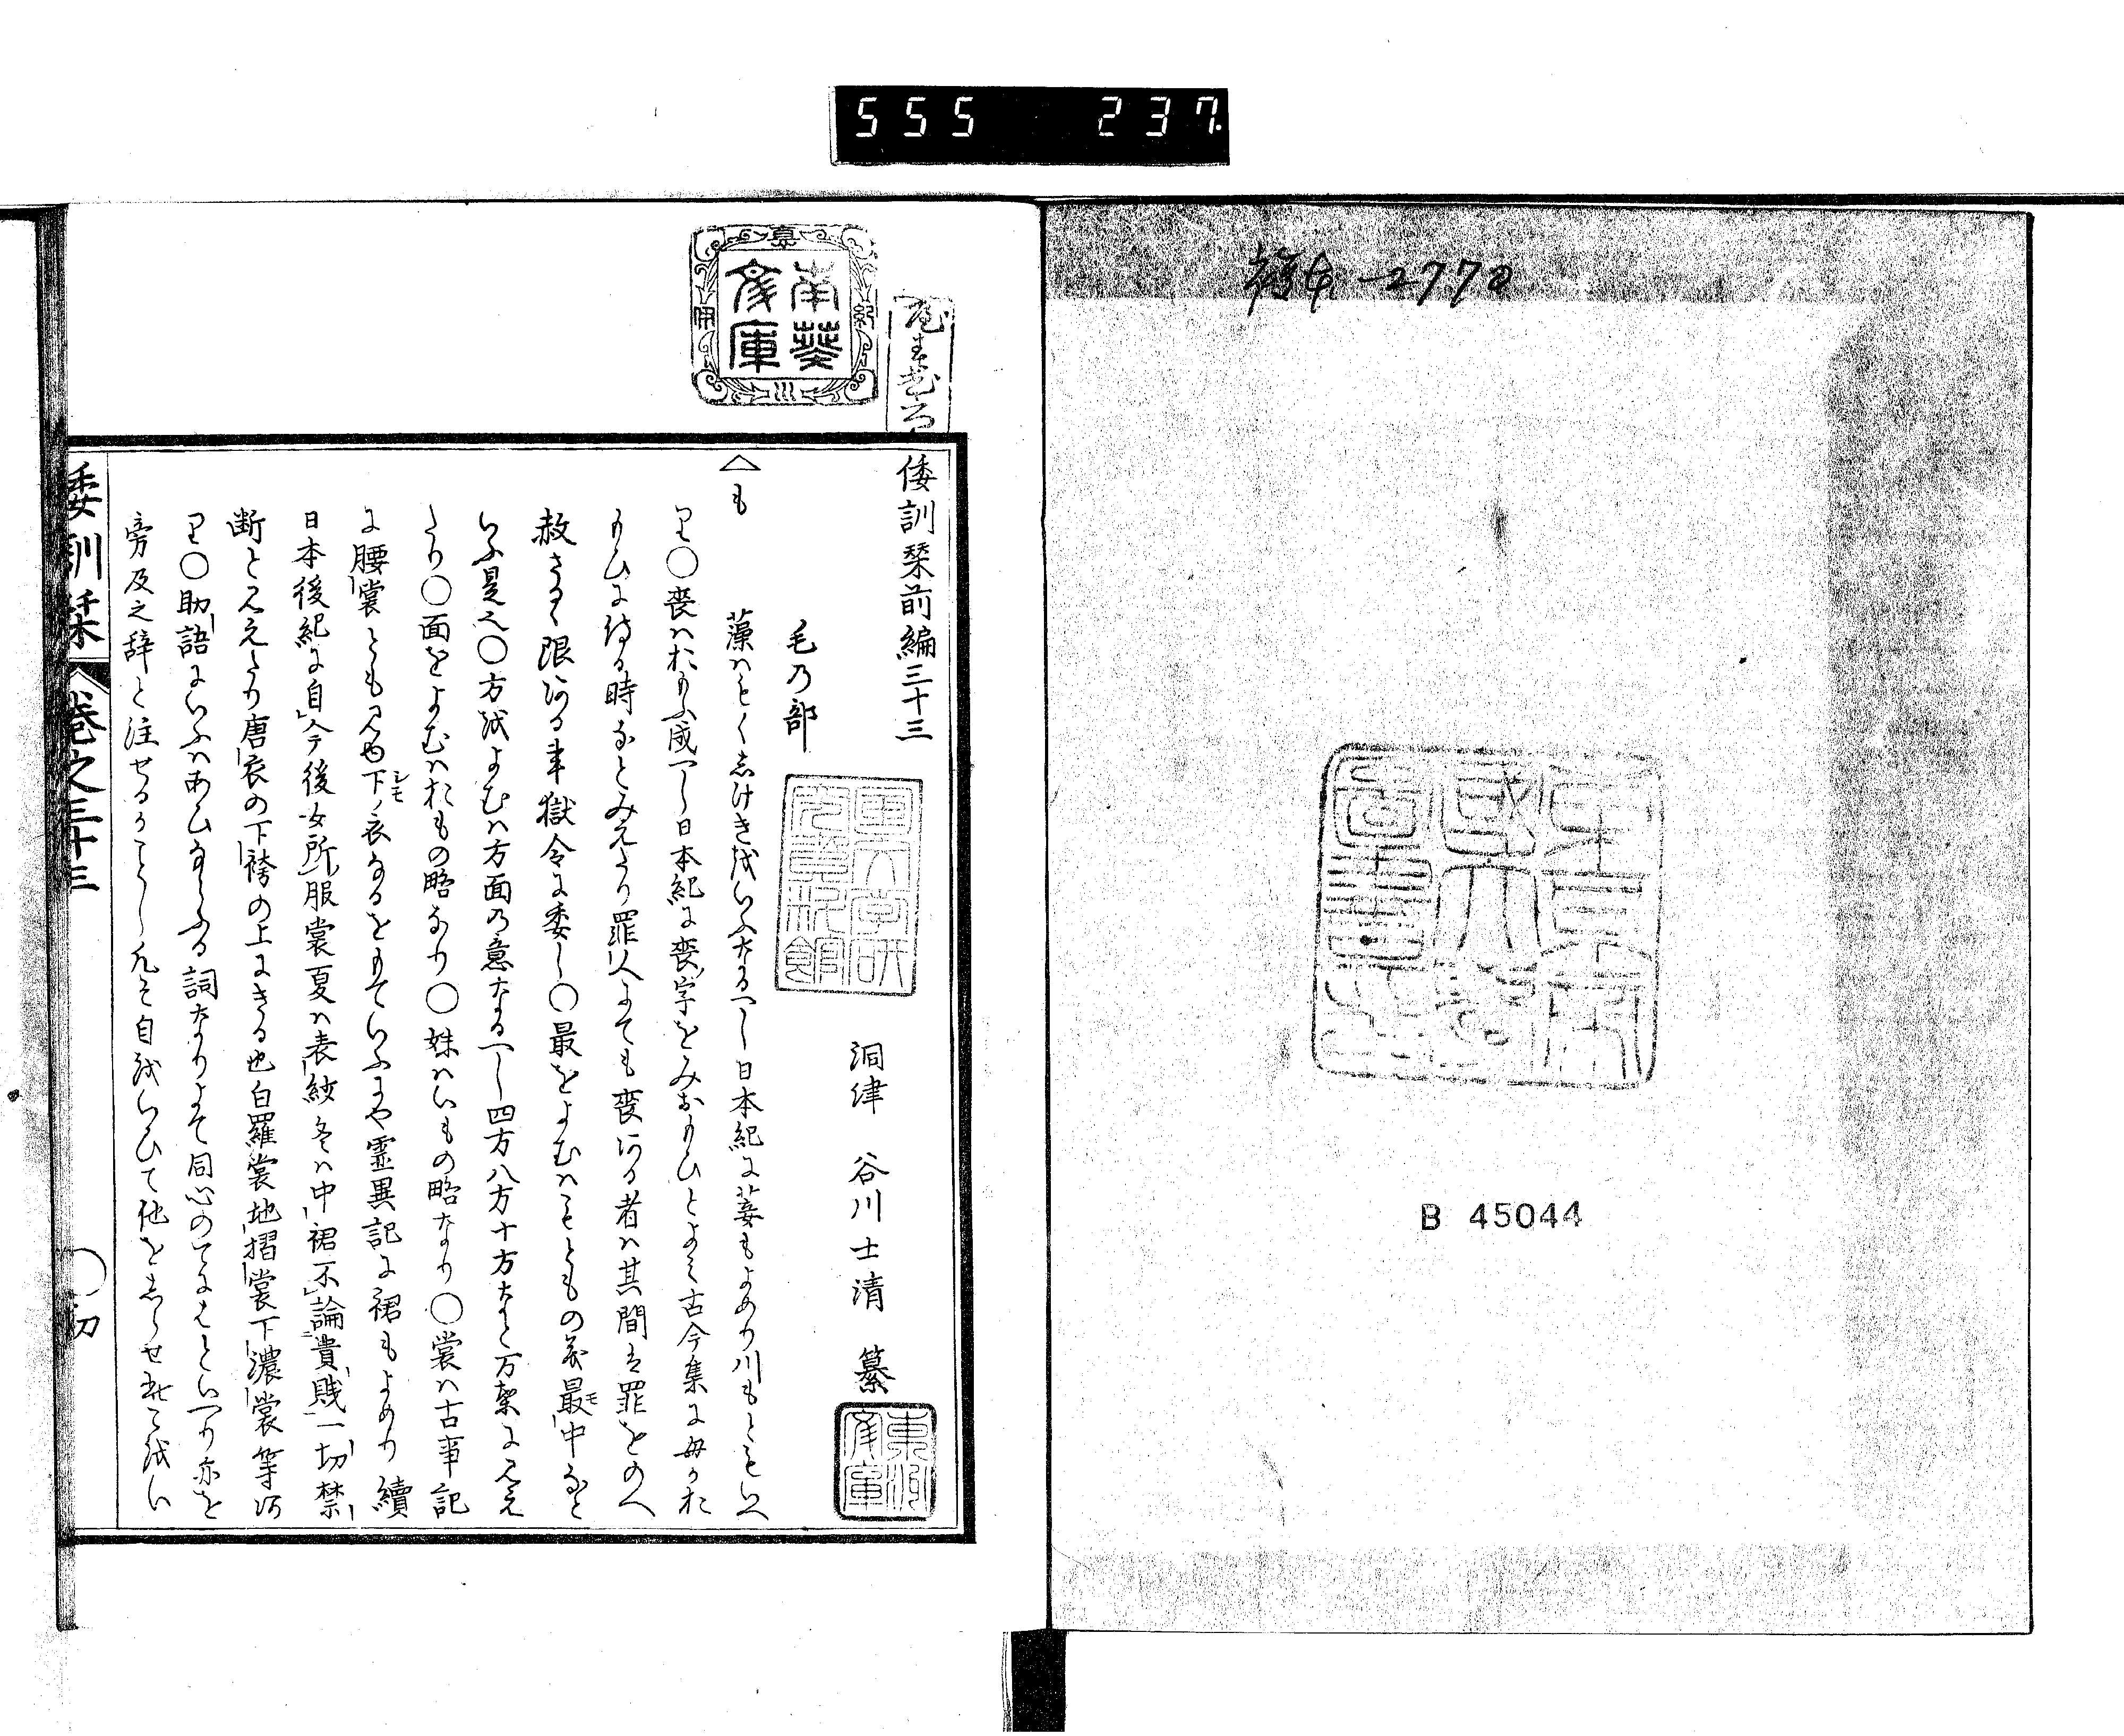 555 237.
B 45044
南葵文庫
倭訓栞前編三十三
洞津 谷川士清 纂
毛乃部
も 藻ハもくしけきをいふなるへし日本紀に蓱もよめり川もともいへ
り○喪ハおもふ成へし日本紀に喪字をみおもひとよみ古今集に母かお
もひに侍る時なとみえたり罪人にても喪ある者ハ其間は罪をのへ
赦さるゝ限ある事獄令に委し○最をよむハもともの義最モ中なと
いふ是也○方をよむハ方面の意なるへし四方八方十方なと万葉に見え
たり○面をよむハおもの略なり○妹ハいもの略なり○裳ハ古事記
に腰裳とも見ゆ下シモノ衣なるをもていふにや霊異記に裙もよめり續
日本後紀に自今後女所服裳夏ハ表紗冬ハ中裙不論貴賎一切禁
断と見えたり唐衣の下袴の上にきる也白羅裳地摺裳下濃裳等あ
り○助語にいふハあひしらふる詞なりよて同心のてにをはといへり亦を
旁及之辞と注せるかことし凡そ自をいひて他をしらせ
倭訓栞 巻之三十三